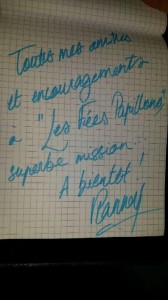 Toutes mes amitiés
et encouragements
a "Les Fées Papillons"
superbe mission.
A bientôt !